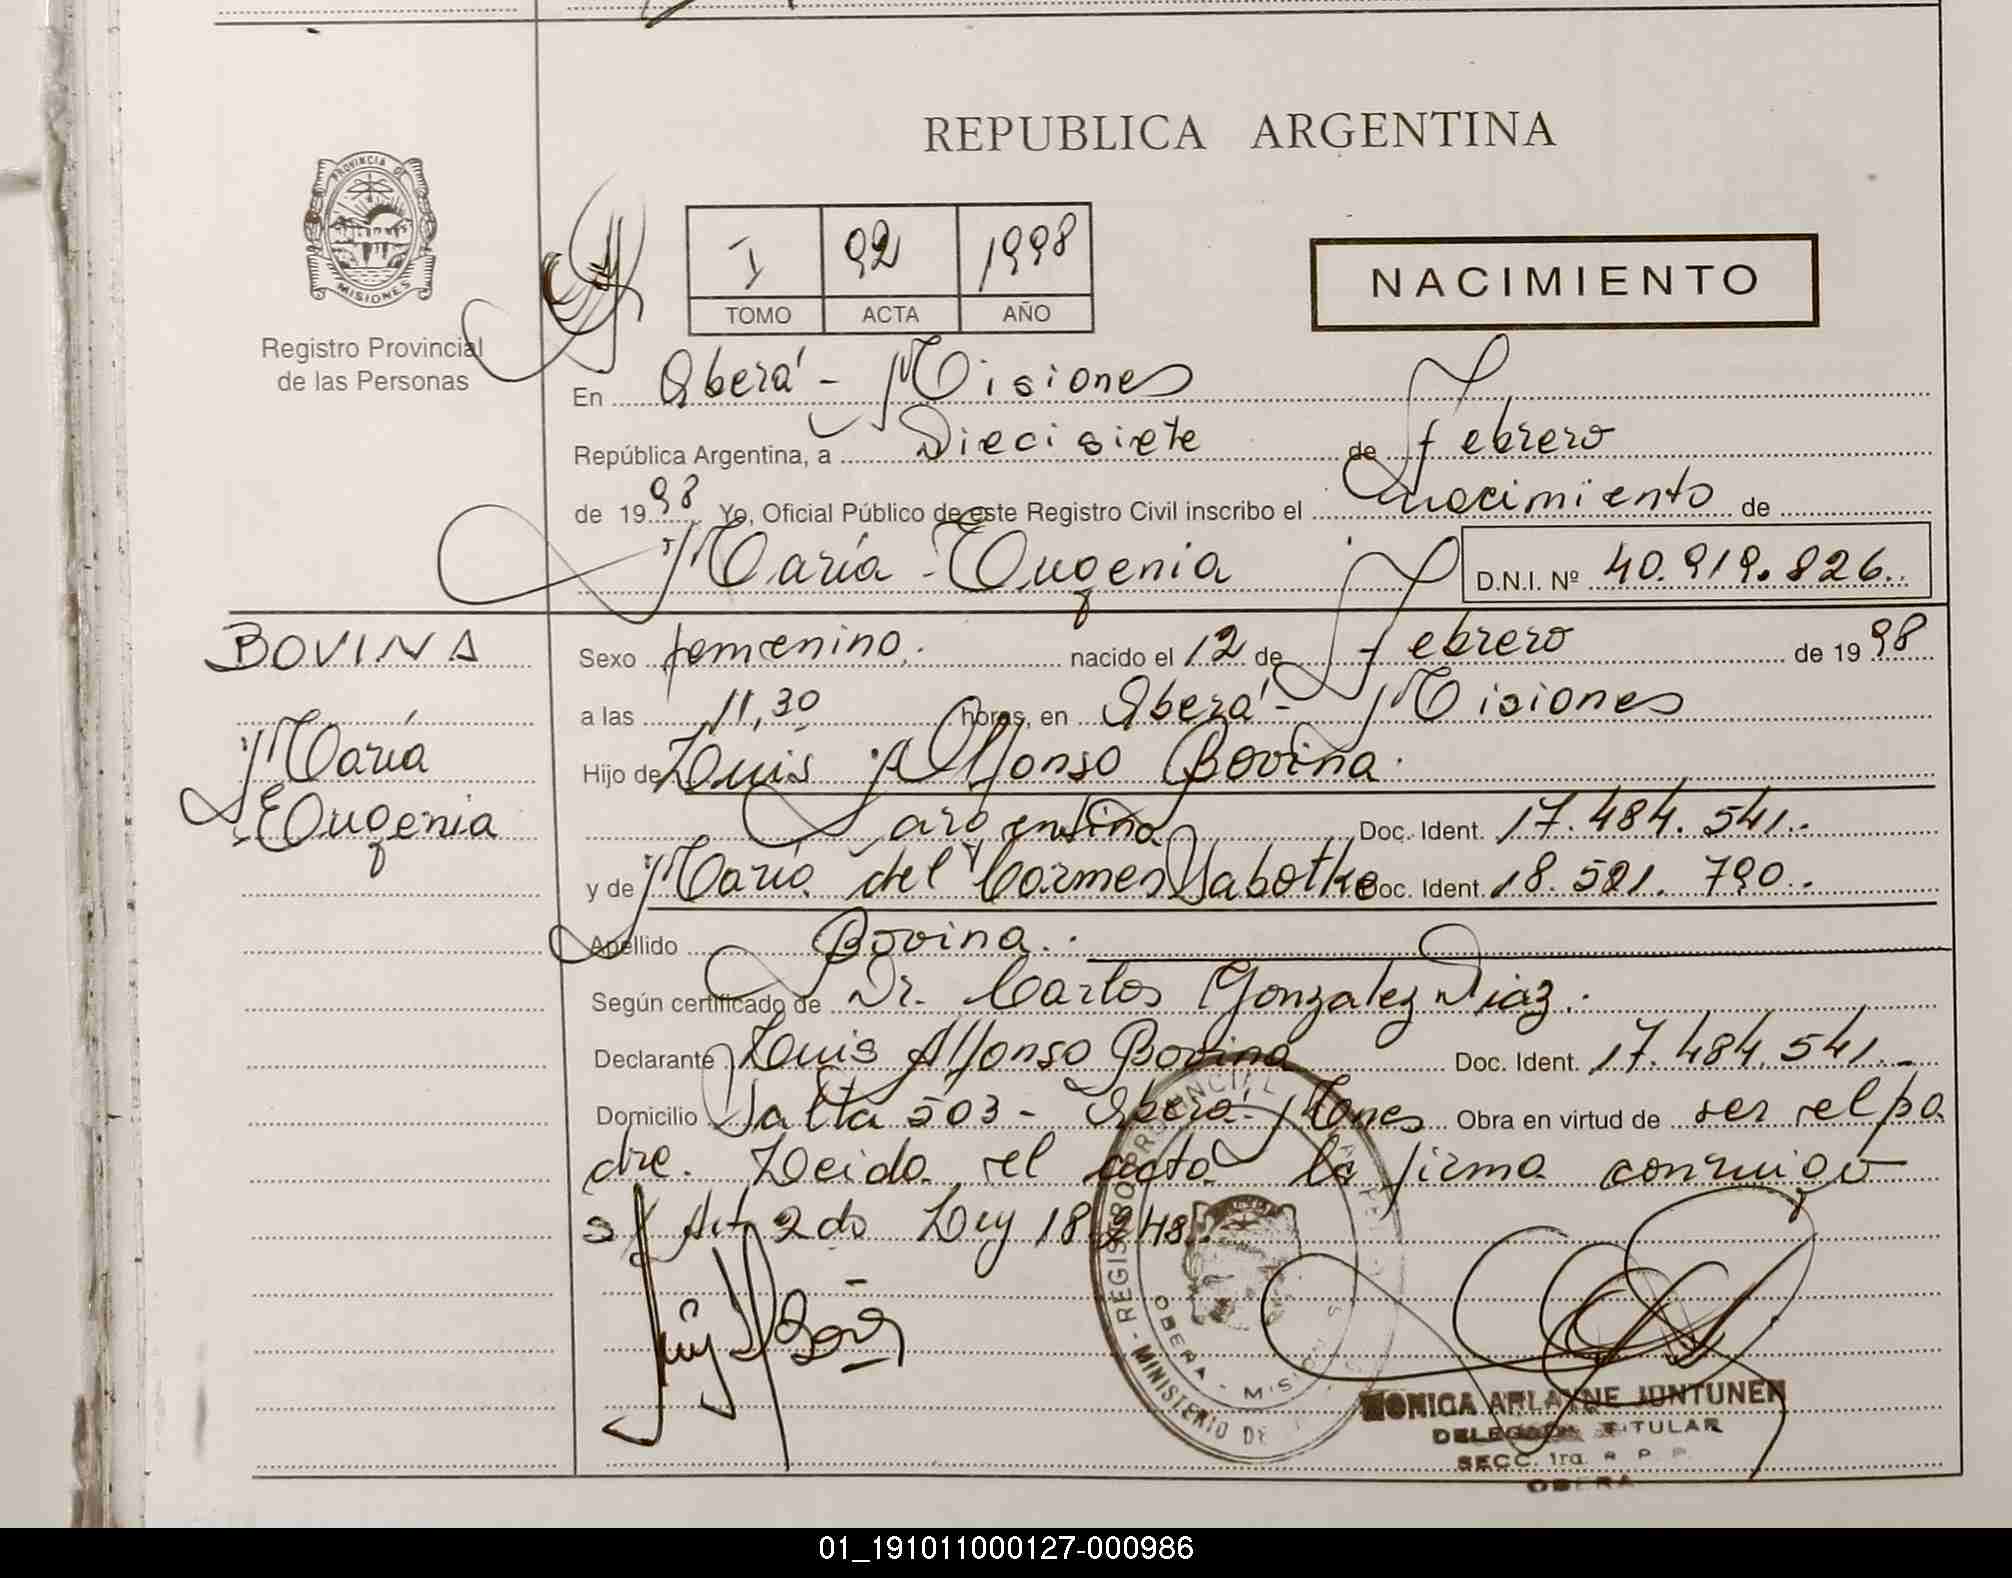 REPUBLICA ARGENTINA
PROVINCIA DE
MISIONES
Registro Provincial
de las Personas
I 92 1998
TOMO ACTA AÑO
NACIMIENTO
En Oberá - Misiones
República Argentina, a Diecisiete de febrero
de 1998 Yo, Oficial Público de este Registro Civil inscribo el nacimiento de
María Eugenia D.N.I. Nº 40.919.826.
BOVINA
María
Eugenia
Sexo femenino. nacido el 12 de febrero de 1998
a las 11,30 horas, en Oberá - Misiones
Hijo de Luis Alfonso Bovina.
argentino Doc. Ident. 17.484.541.
y de María del Carmen Sabotke Doc. Ident. 18.521.790.
Apellido Bovina.
Según certificado de Dr. Carlos Gonzalez Diaz.
Declarante Luis Alfonso Bovina Doc. Ident. 17.484.541.
Domicilio Salta 503 - Oberá - Mnes Obra en virtud de ser el pa
dre. Leida el acta la firma conmigo
s/ Art 2do Ley 18.248.
REGISTRO PROVINCIAL
MINISTERIO DE
OBERA - MISIONES
MONICA ARLAYNE JUNTUNEN
DELEGADA TITULAR
SECC. 1ra. R. P. P.
OBERA
01_191011000127-000986